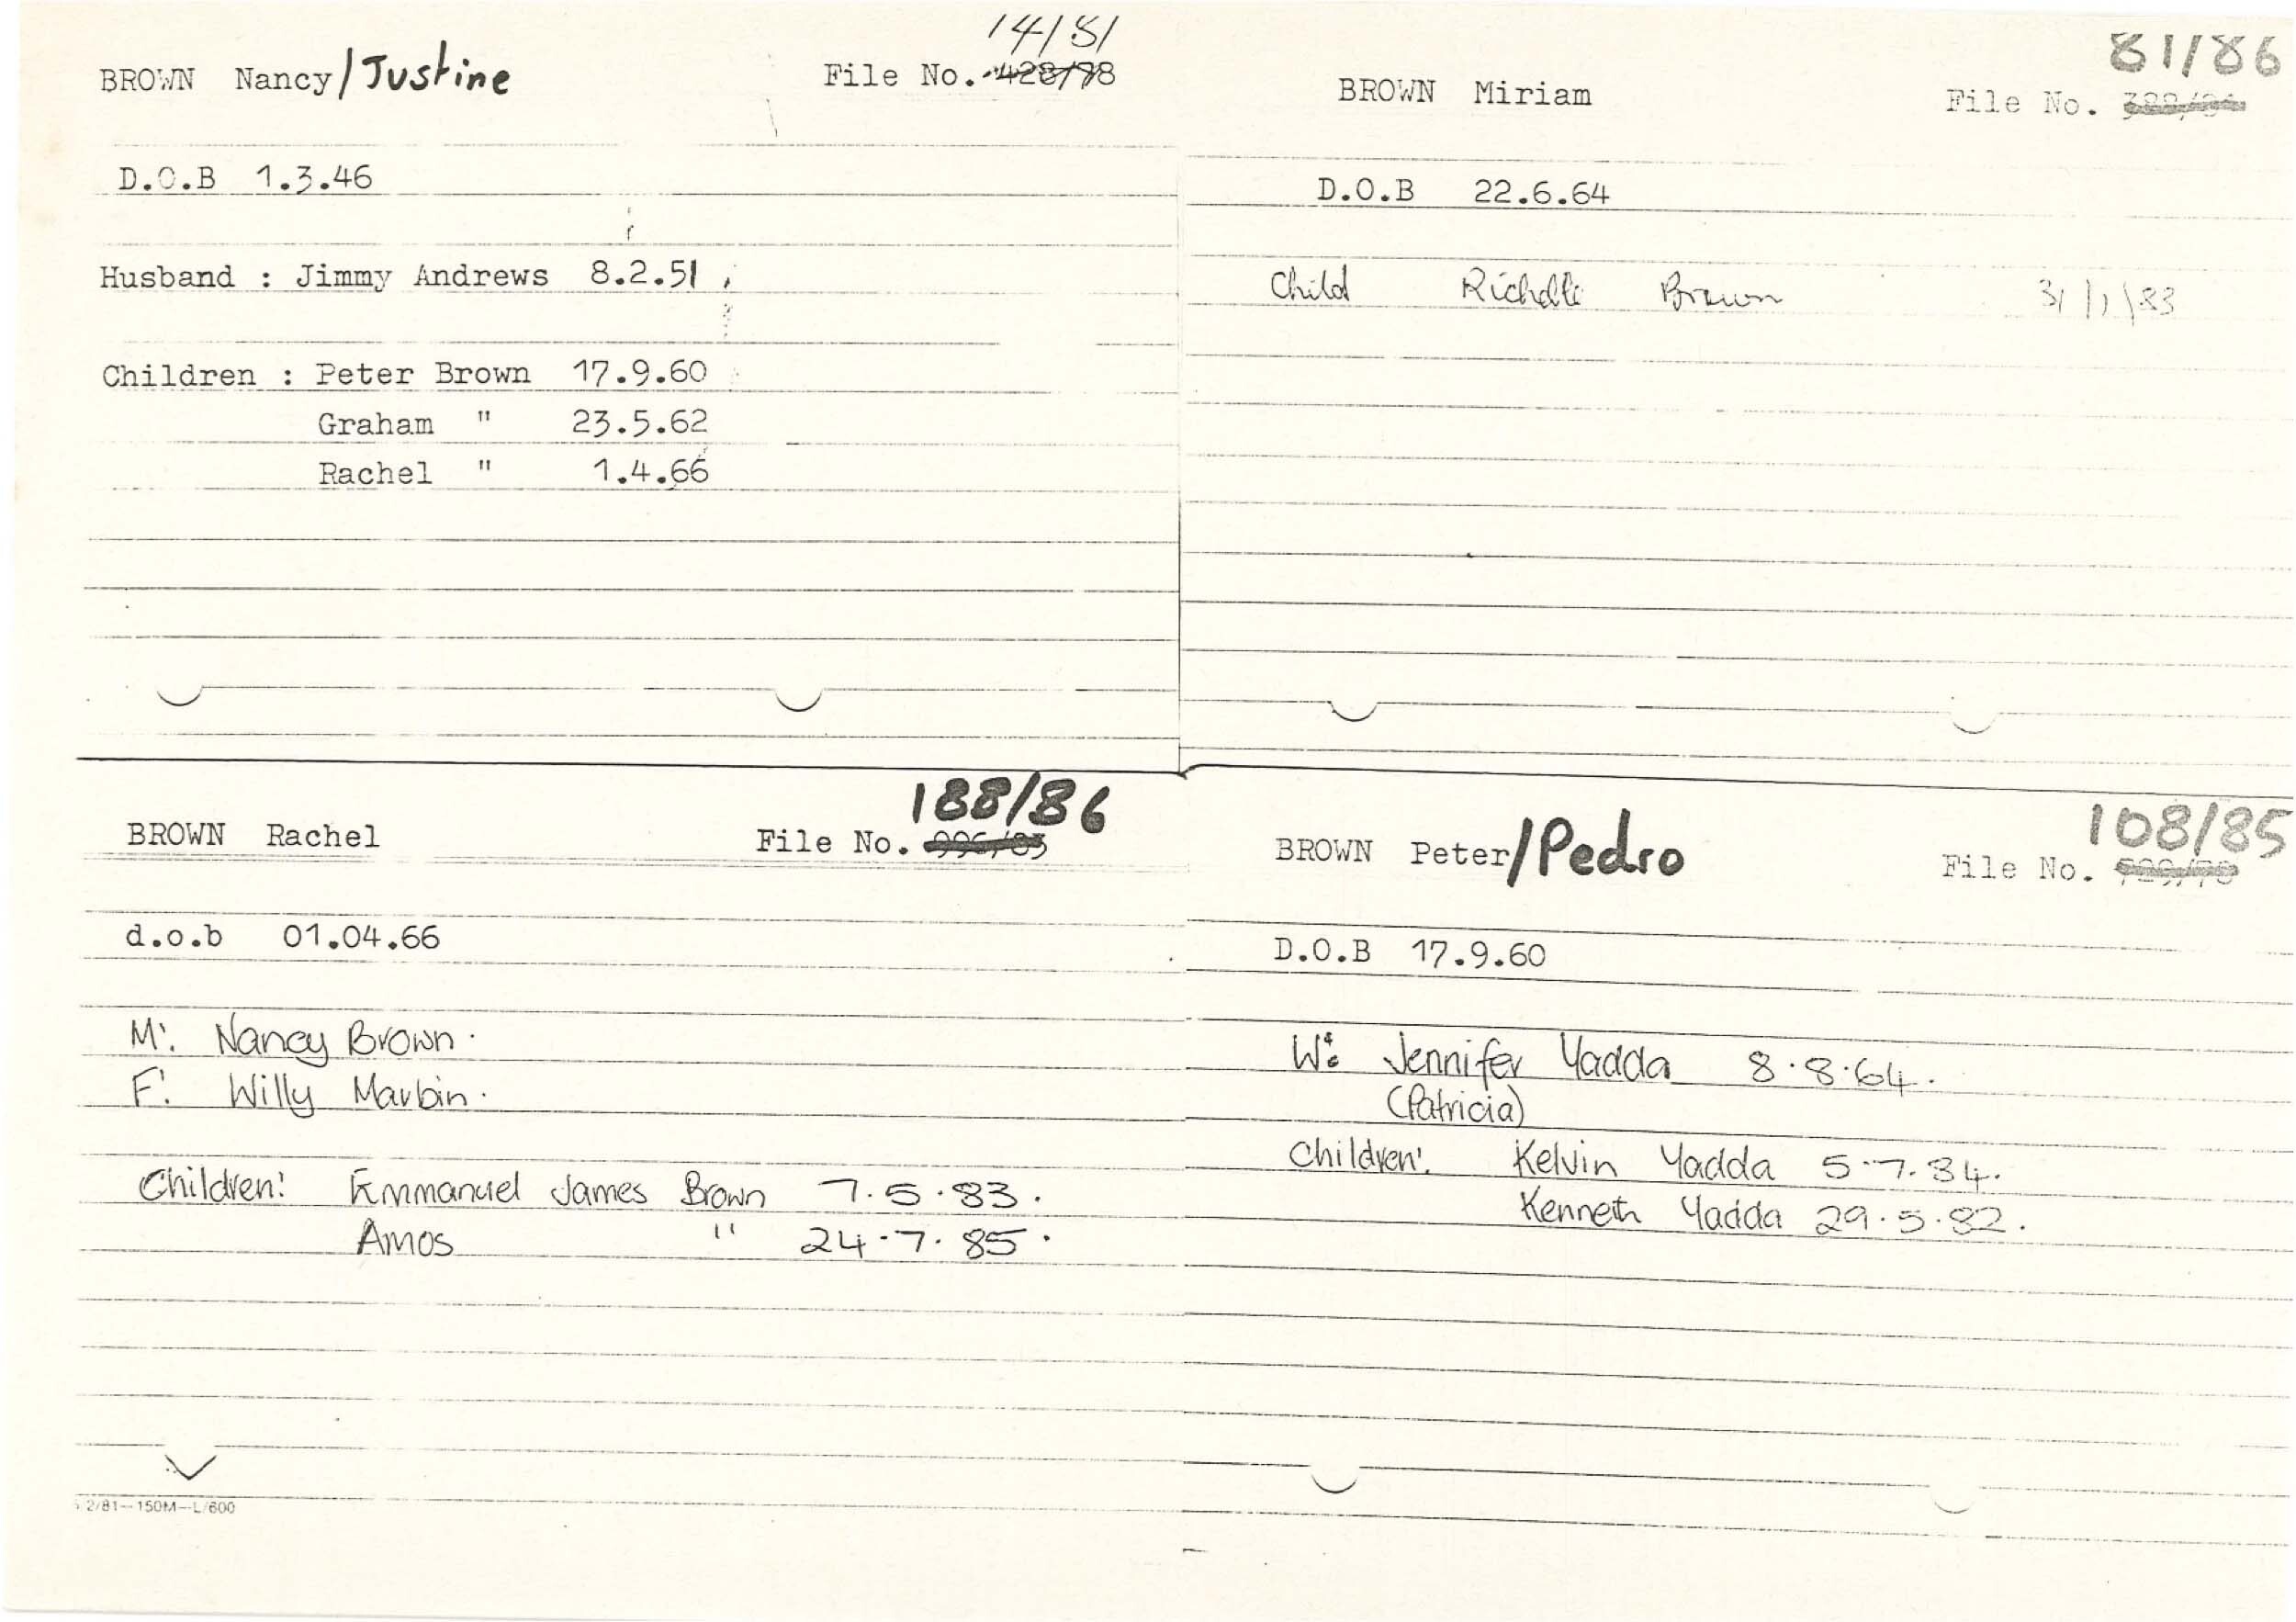 14/81
BROWN Nancy/Justine File No. 428/78
D.O.B 1.3.46
Husband : Jimmy Andrews 8.2.51
Children : Peter Brown 17.9.60
Graham " 23.5.62
Rachel " 1.4.66
81/86
BROWN Miriam File No.
D.O.B 22.6.64
Child Richelle Brown 31/1/83
188/86
BROWN Rachel File No. 996/83
d.o.b 01.04.66
M: Nancy Brown.
F: Willy Marbin.
Children: Emmanuel James Brown 7.5.83.
Amos " 24.7.85.
2/81—150M—L/600
108/85
BROWN Peter/Pedro File No.
D.O.B 17.9.60
W: Jennifer Yadda 8.8.64.
(Patricia)
Children: Kelvin Yadda 5.7.84.
Kenneth Yadda 29.5.82.